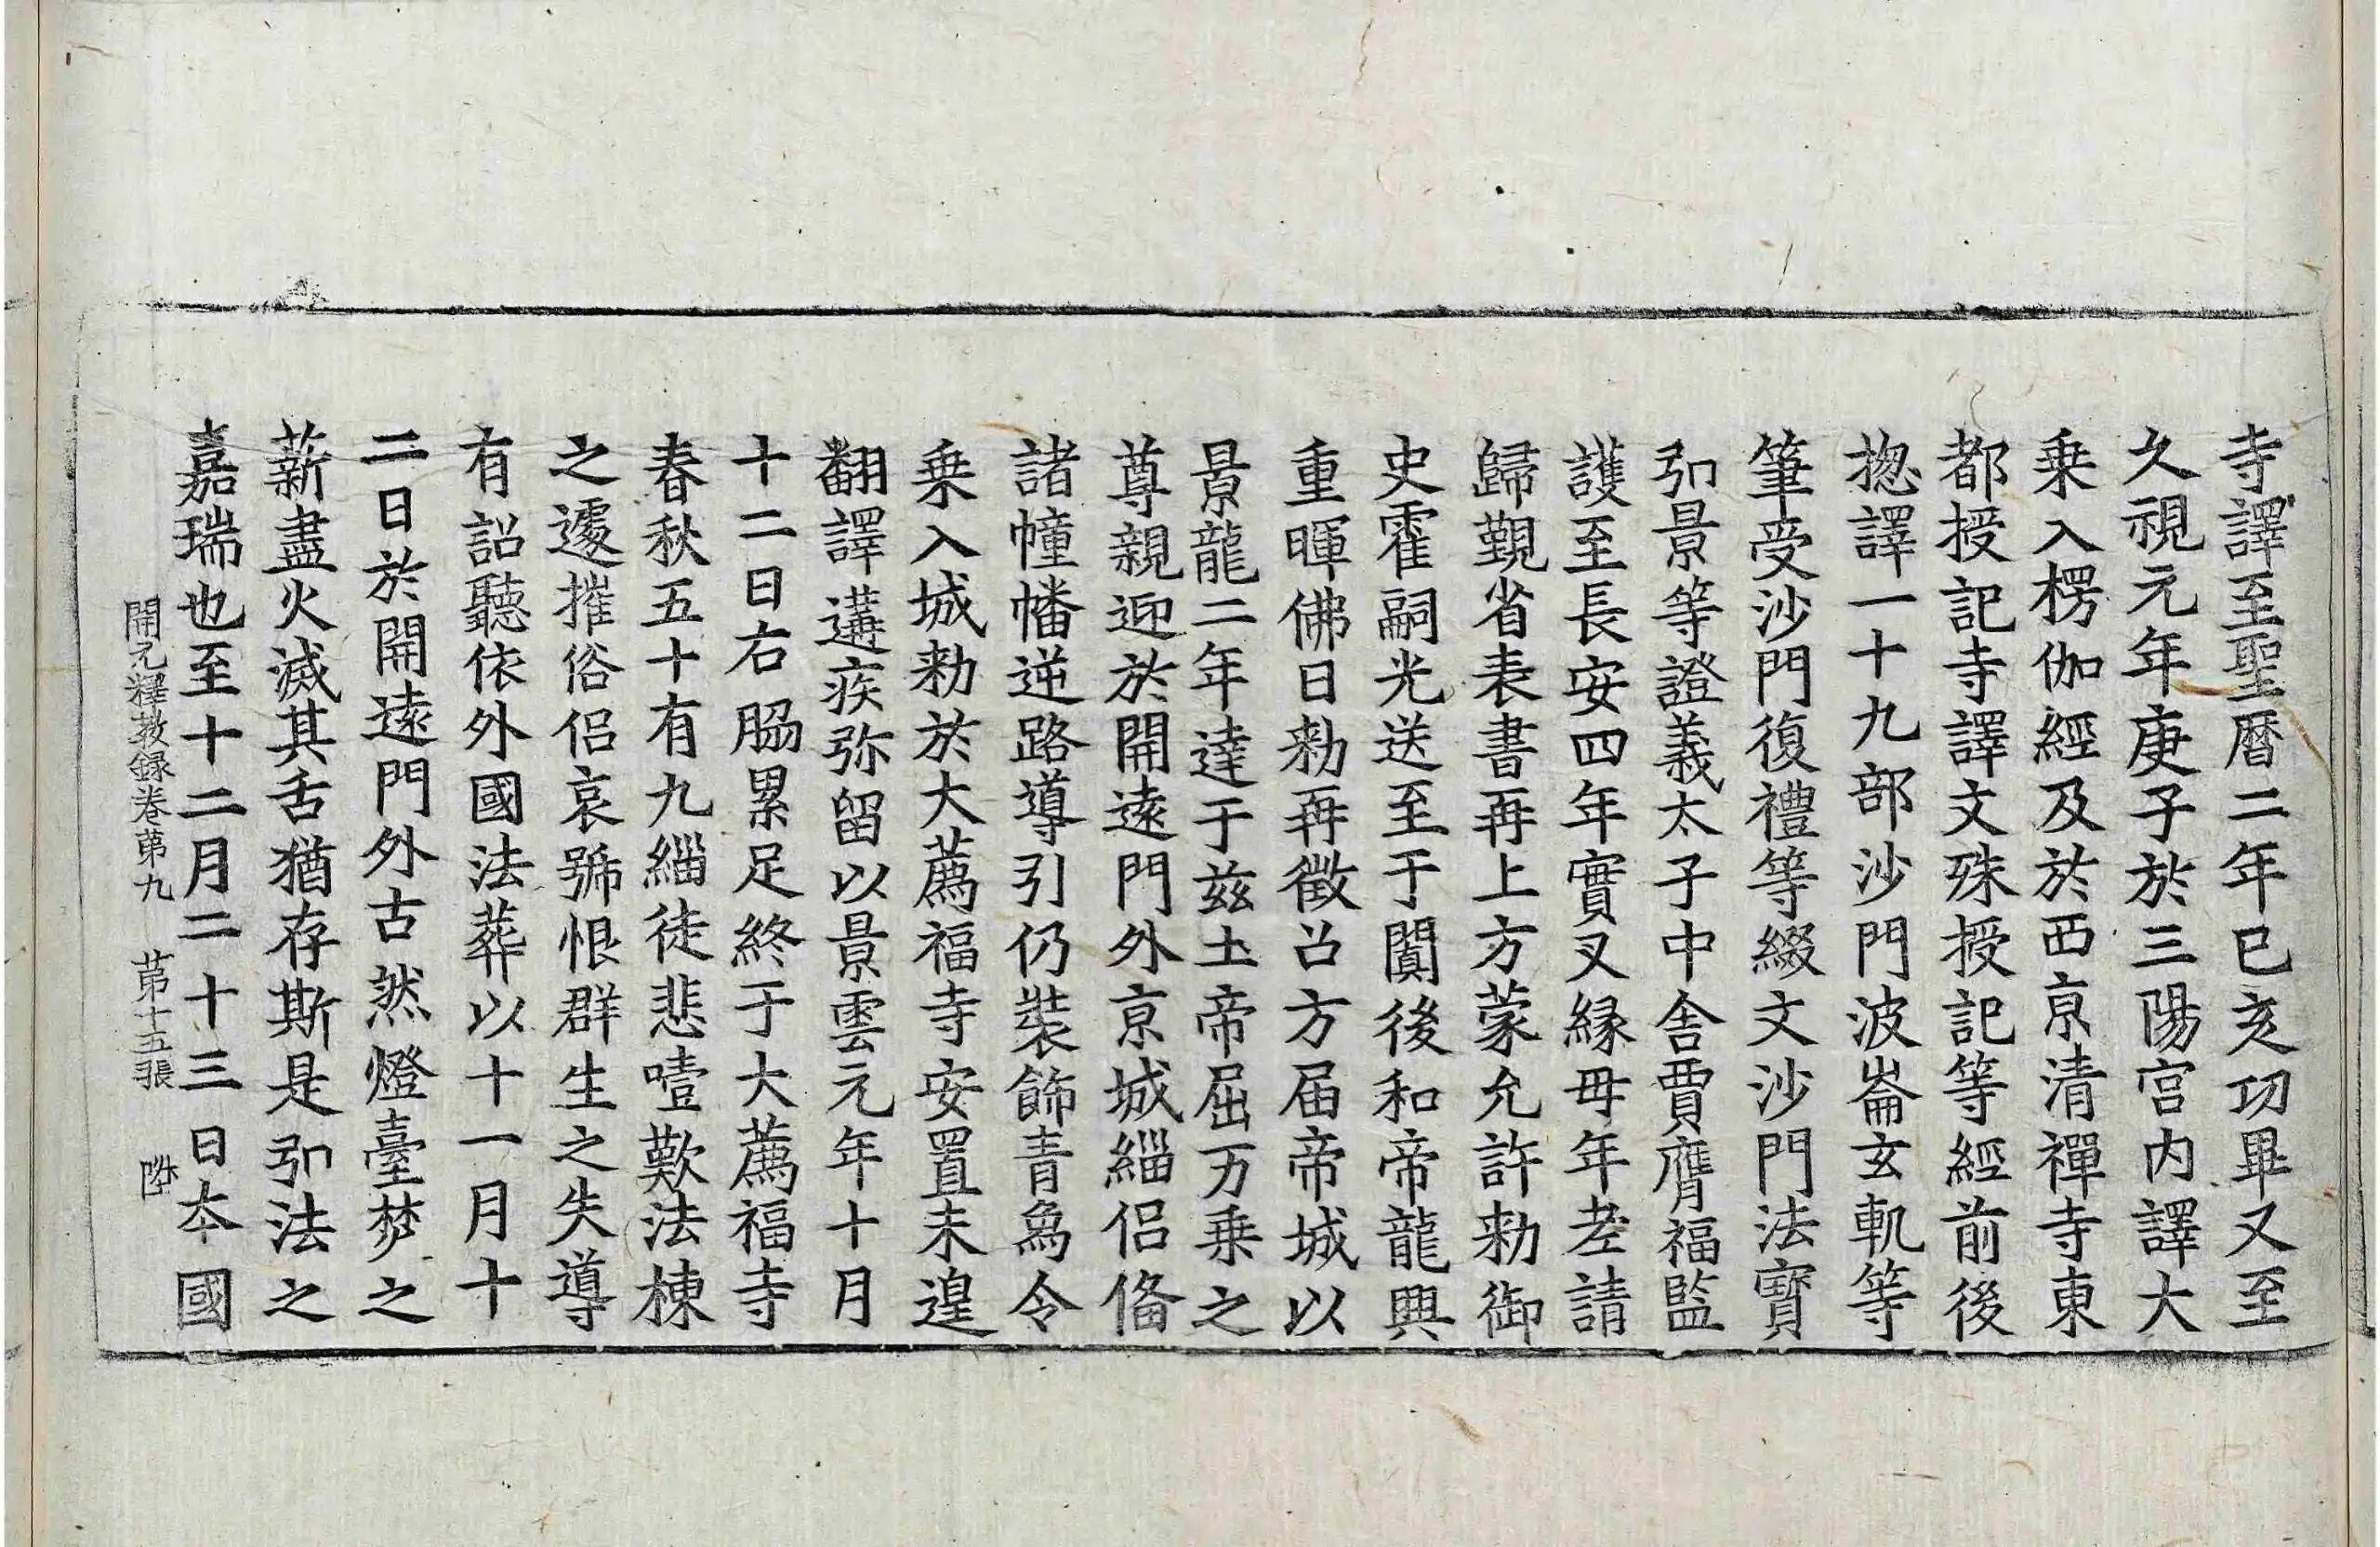 寺譯至聖曆二年己亥功畢又至
久視元年庚子於三陽宮内譯大
乗入楞伽經及於西京清禪寺東
都授記寺譯文殊授記等經前後
揔譯一十九部沙門波崙玄軌等
筆受沙門復禮等綴文沙門法寶
弘景等證義太子中舎賈膺福監
護至長安四年實叉緣母年老請
歸覲省表書再上方蒙允許勑御
史霍嗣光送至于闐後和帝龍興
重暉佛日勑再徵召方届帝城以
景龍二年達于茲土帝屈万乗之
尊親迎於開遠門外京城緇侶俻
諸幢幡逆路導引仍裝飾青鳥令
乗入城勑於大薦福寺安置未遑
翻譯遘疾弥留以景雲元年十月
十二日右脇累足終于大薦福寺
春秋五十有九緇徒悲噎歎法棟
之遽摧俗侶哀號恨群生之失導
有詔聽依外國法葬以十一月十
二日於開遠門外古然燈臺焚之
薪盡火滅其舌猶存斯是弘法之
嘉瑞也至十二月二十三日本國
開元釋教録卷第九　第十五張